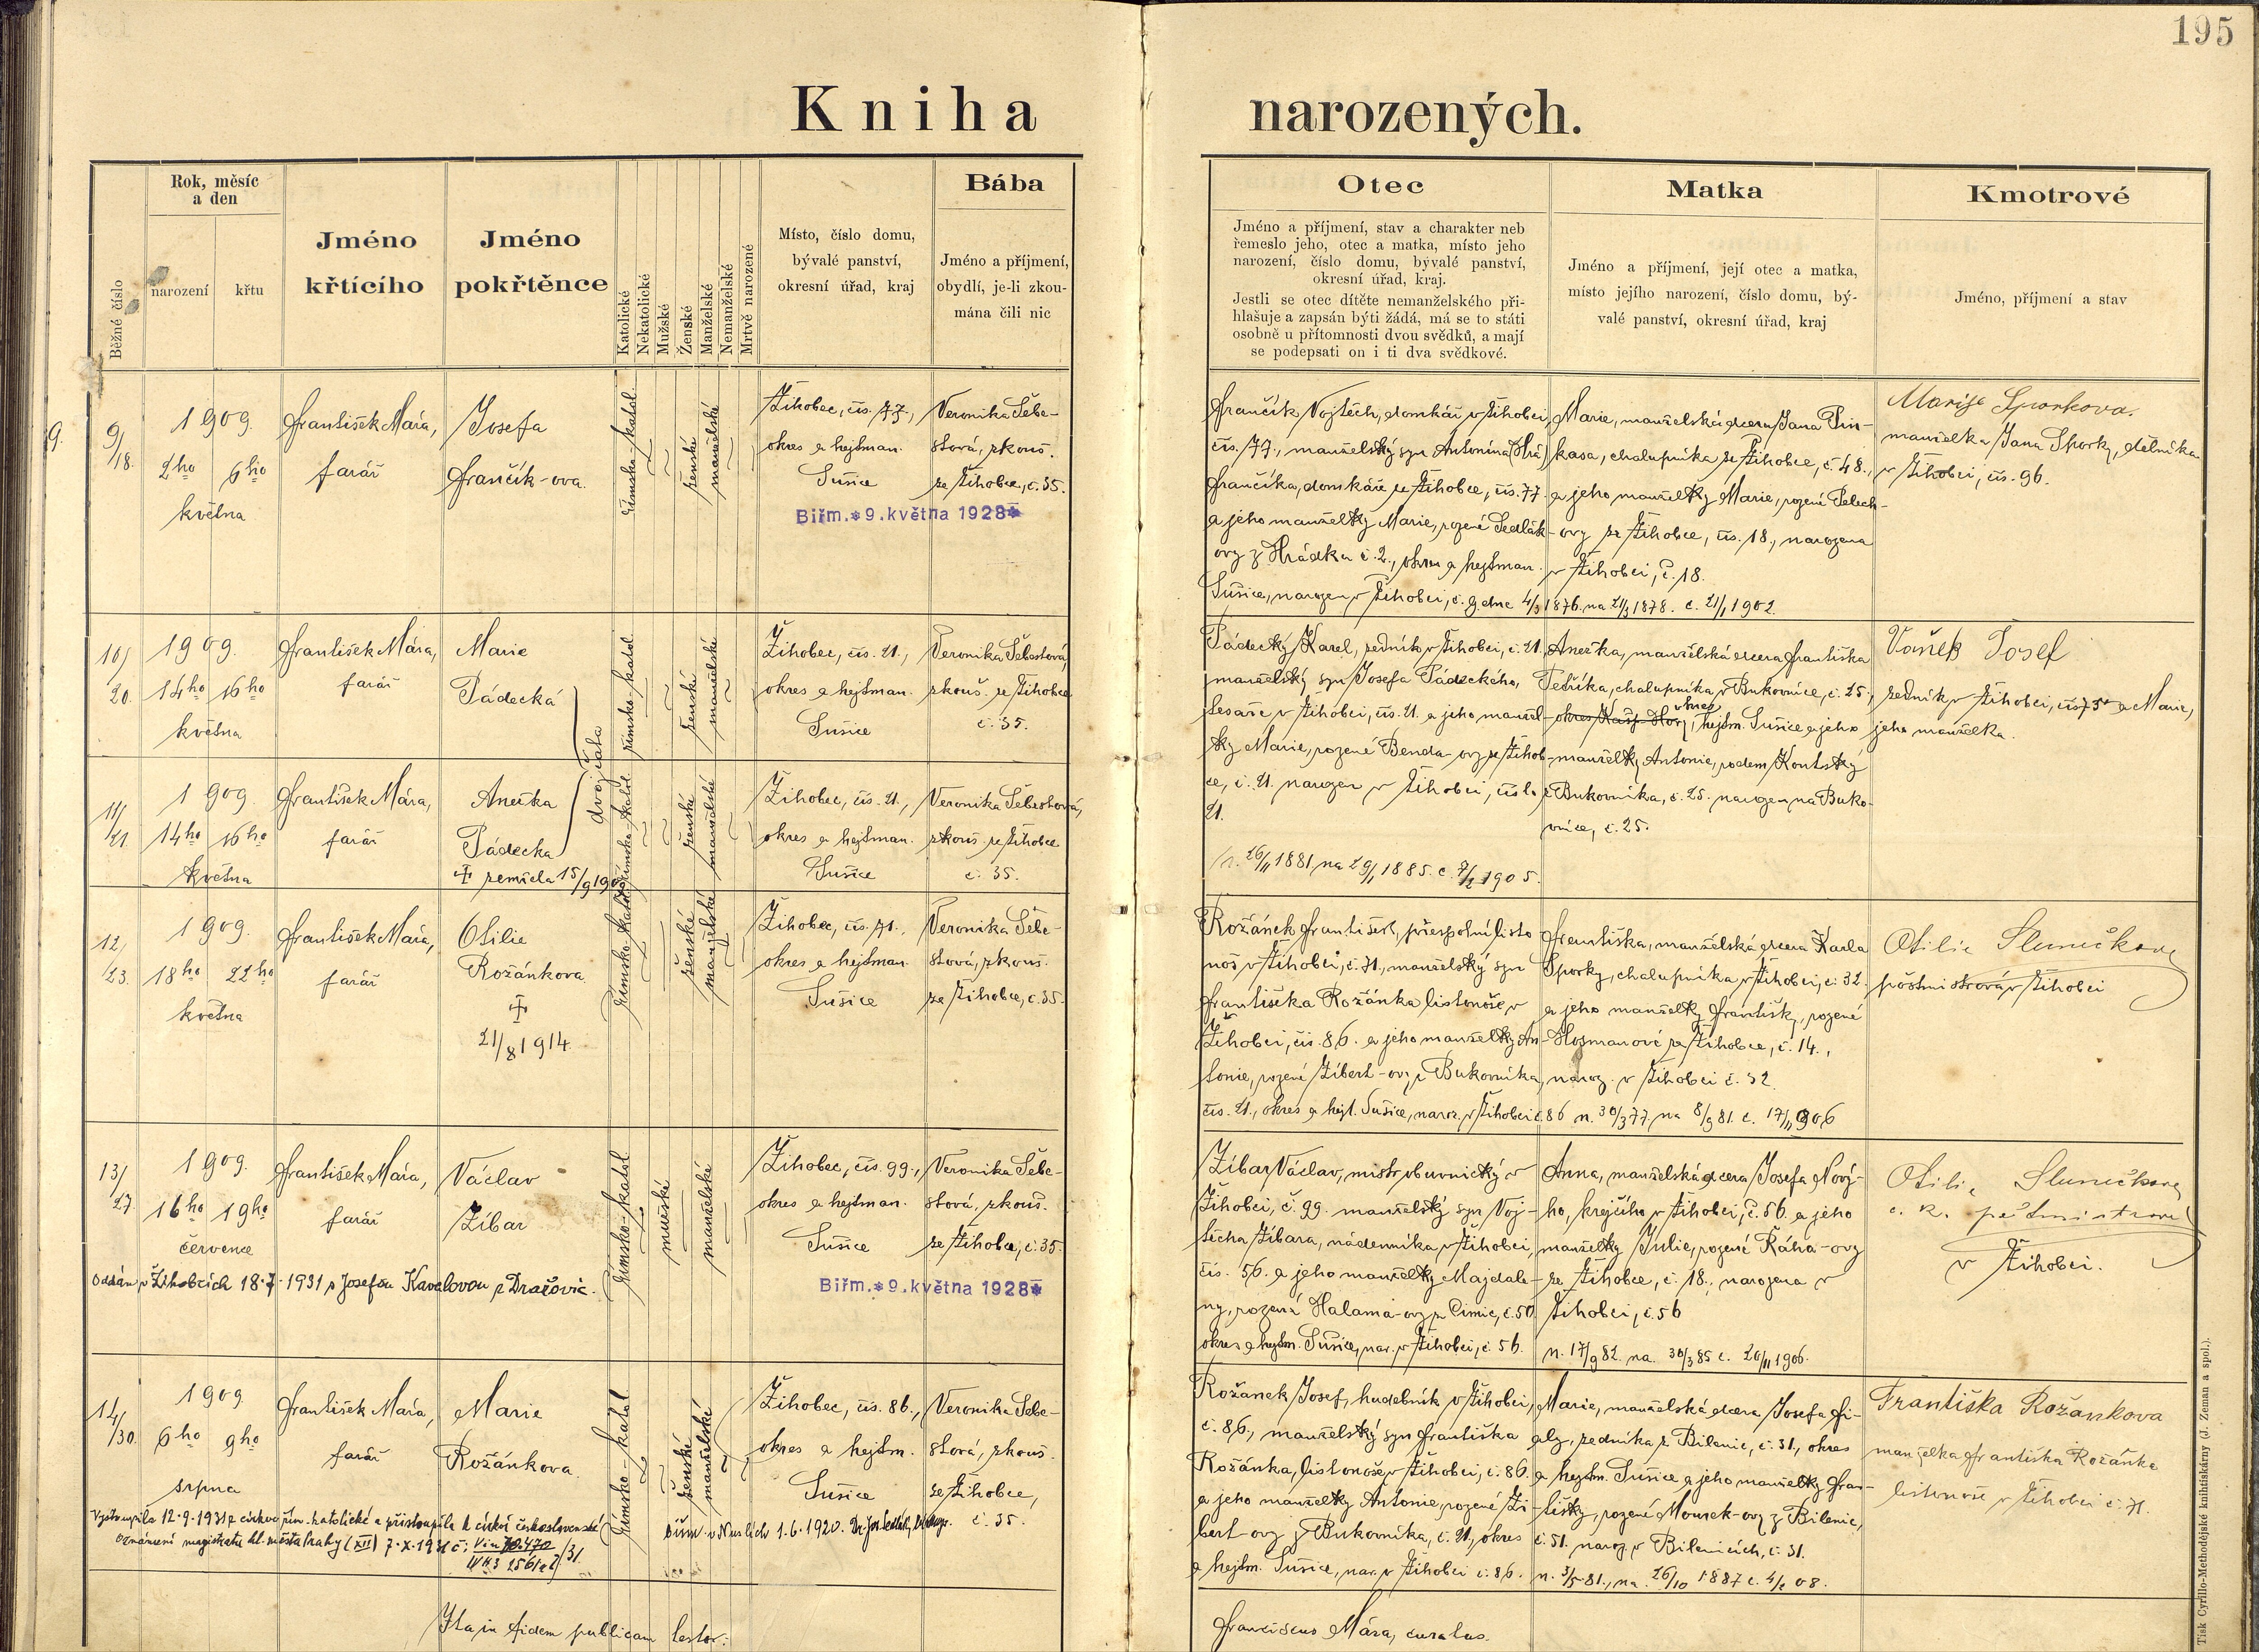 195
Kniha narozených.
Běžné číslo
Rok, měsíc
a den
narození
křtu
Jméno
křtícího
Jméno
pokřtěnce
Katolické
Nekatolické
Mužské
Ženské
Manželské
Nemanželské
Mrtvě narozené
Místo, číslo domu,
bývalé panství,
okresní úřad, kraj
Bába
Jméno a příjmení,
obydlí, je-li zkou-
mána čili nic
Otec
Jméno a příjmení, stav a charakter neb
řemeslo jeho, otec a matka, místo jeho
narození, číslo domu, bývalé panství,
okresní úřad, kraj.
Jestli se otec dítěte nemanželského při-
hlašuje a zapsán býti žádá, má se to státi
osobně u přítomnosti dvou svědků, a mají
se podepsati on i ti dva svědkové.
Matka
Jméno a příjmení, její otec a matka,
místo jejího narození, číslo domu, bý-
valé panství, okresní úřad, kraj
Kmotrové
Jméno, příjmení a stav
9.
9/18.
1909.
2ho 6ho
května
František Mára,
farář
Josefa
Frančík-ova.
římsko-katol.
ženské
manželské
Žihobec, čís. 77,
okres a hejtman.
Sušice
Biřm. * 9. května 1928 *
Veronika Šebe-
stová, zkouš.
ze Žihobce, č. 35.
Frančík Vojtěch, domkář v Žihobci,
čís. 77., manželský syn Antonína
Frančíka, domkáře ze Žihobce, čís. 77.
a jeho manželky Marie, rozené Sedlák-
ovy z Hrádku č. 2., okres a hejtman.
Sušice, narozen v Žihobci, č. 9. dne 4/3 1876. na 21/3 1878. c. 21/1 1902.
Marie, manželská dcera Jana Pin-
kasa, chalupníka ze Žihobce, č. 48.,
a jeho manželky Marie, rozené Pelech-
ovy ze Žihobce, čís. 18., narozena
v Žihobci, č. 18.
Marije Sporkova.
manželka Jana Sporky, dělníka
v Žihobci, čís. 96.
10/
20.
1909.
14ho 16ho
května
František Mára,
farář
Marie
Pádecká
dvojčata
římsko-katol
ženské
manželské
Žihobec, čís. 21.,
okres a hejtman.
Sušice
Veronika Šebestová,
zkouš. ze Žihobce
č. 35.
Pádecký Karel, zedník v Žihobci, č. 21.
manželský syn Josefa Pádeckého,
tesaře v Žihobci, čís. 21. a jeho manžel-
ky Marie, rozené Benda-ovy ze Žihob-
ce, č. 21. narozen v Žihobci, číslo
21.
n. 26/11 1881. na 29/1 1885. c. 7/2 1905.
Anežka, manželská dcera Františka
Petříka, chalupníka v Bukovníce, č. 25.,
okres Kašp. Hory, hejtm. Sušice a jeho
manželky Antonie, rodem Koutský
z Bukovníka, č. 25. narozena na Buko-
vníce, č. 25.
Vaněk Josef
zedník v Žihobci, čís 75 a Marie,
jeho manželka.
11/
21.
1909.
14ho 16ho
května
František Mára,
farář
Anežka
Pádecka
† zemřela 15/9 1909
římsko-katol.
ženské
manželské
Žihobec, čís. 21.,
okres a hejtman.
Sušice
Veronika Šebestová,
zkouš. ze Žihobce
č. 35.
12/
23.
1909.
18ho 22ho
května
František Mára,
farář
Otilie
Rožánkova
†
21/8 1914
římsko-katol.
ženské
manželské
Žihobec, čís. 71.,
okres a hejtman
Sušice
Veronika Šebe-
stová, zkouš.
ze Žihobce, č. 35.
Rožánek František, přespolní listo
noš v Žihobci, č. 71., manželský syn
Františka Rožánka listonoše v
Žihobci, čís. 86. a jeho manželky An-
tonie, rozené Žibert-ovy z Bukovníka,
čís. 21., okres a hejt. Sušice, naroz. v Žihobci č. 86 n. 30/3 77. na 8/9 81. c. 17/11 906
Františka, manželská dcera Karla
Sporky, chalupníka v Žihobci, č. 32.
a jeho manželky Františky, rozené
Hosmanové ze Žihobce, č. 14.,
naroz. v Žihobci č. 32.
Otilie Slunečkova
poštmistrová v Žihobci
13/
27.
1909.
16ho 19ho
července
František Mára,
farář
Václav
Žíbar
římsko-katol
mužské
manželské
Žihobec, čís. 99.,
okres a hejtman.
Sušice
Biřm. * 9. května 1928 *
Veronika Šebe-
stová, zkouš.
ze Žihobce, č. 35.
Oddán v Žihobcích 18.7.1931 s Josefou Kavalovou z Dražovic.
Žíbar Václav, mistr obuvnický v
Žihobci, č. 99. manželský syn Voj-
těcha Žíbara, nádenníka v Žihobci,
čís. 56. a jeho manželky Majdale-
ny, rozená Halama-ovy z Čimic, č. 50
okres a hejtm. Sušice, nar. v Žihobci, č. 56.
Anna, manželská dcera Josefa Nový-
ho, krejčího v Žihobci, č. 56. a jeho
manželky Julie, rozené Ráha-ovy
ze Žihobce, č. 18., narozena v
Žihobci, č. 56
n. 17/9 82. na. 30/3 85 c. 20/11 1906.
Otilie Slunečkova
c. k. poštmistrová
v Žihobci.
14/
30.
1909.
6ho 9ho
srpna
František Mára,
farář
Marie
Rožánkova.
římsko-katol
ženské
manželské
Žihobec, čís. 86.,
okres a hejtm.
Sušice
Veronika Šebe-
stová, zkouš.
ze Žihobce,
č. 35.
Vystoupila 12.9.1931 z církve řím.-katolické a přistoupila k církvi československé
Oznámení magistrátu hl. města Prahy (XII) 7.X.1931 č.
biřm. v Nuslích 1.6.1920.
Rožanek Josef, hudebník v Žihobci,
č. 86., manželský syn Františka
Rožánka, listonoše v Žihobci, č. 86.
a jeho manželky Antonie, rozené Ži-
bert-ovy z Bukovníka, č. 21., okres
a hejtm. Sušice, nar. v Žihobci č. 86.
Marie, manželská dcera Josefa Fi-
aly, zedníka z Bilenic, č. 31., okres
a hejtm. Sušice a jeho manželky Fran-
tišky, rozené Mourek-ovy z Bilenic,
č. 51. naroz. v Bilenicích, č. 31.
n. 3/5 81., na. 26/10 1887 c. 4/2 08.
Františka Rožankova
manželka Františka Rožánka
listonoše v Žihobci č. 71.
Ita in fidem publicam testor:
Franciscus Mára, curatus.
Tisk Cyrillo-Methodějské knihtiskárny (J. Zeman a spol.).